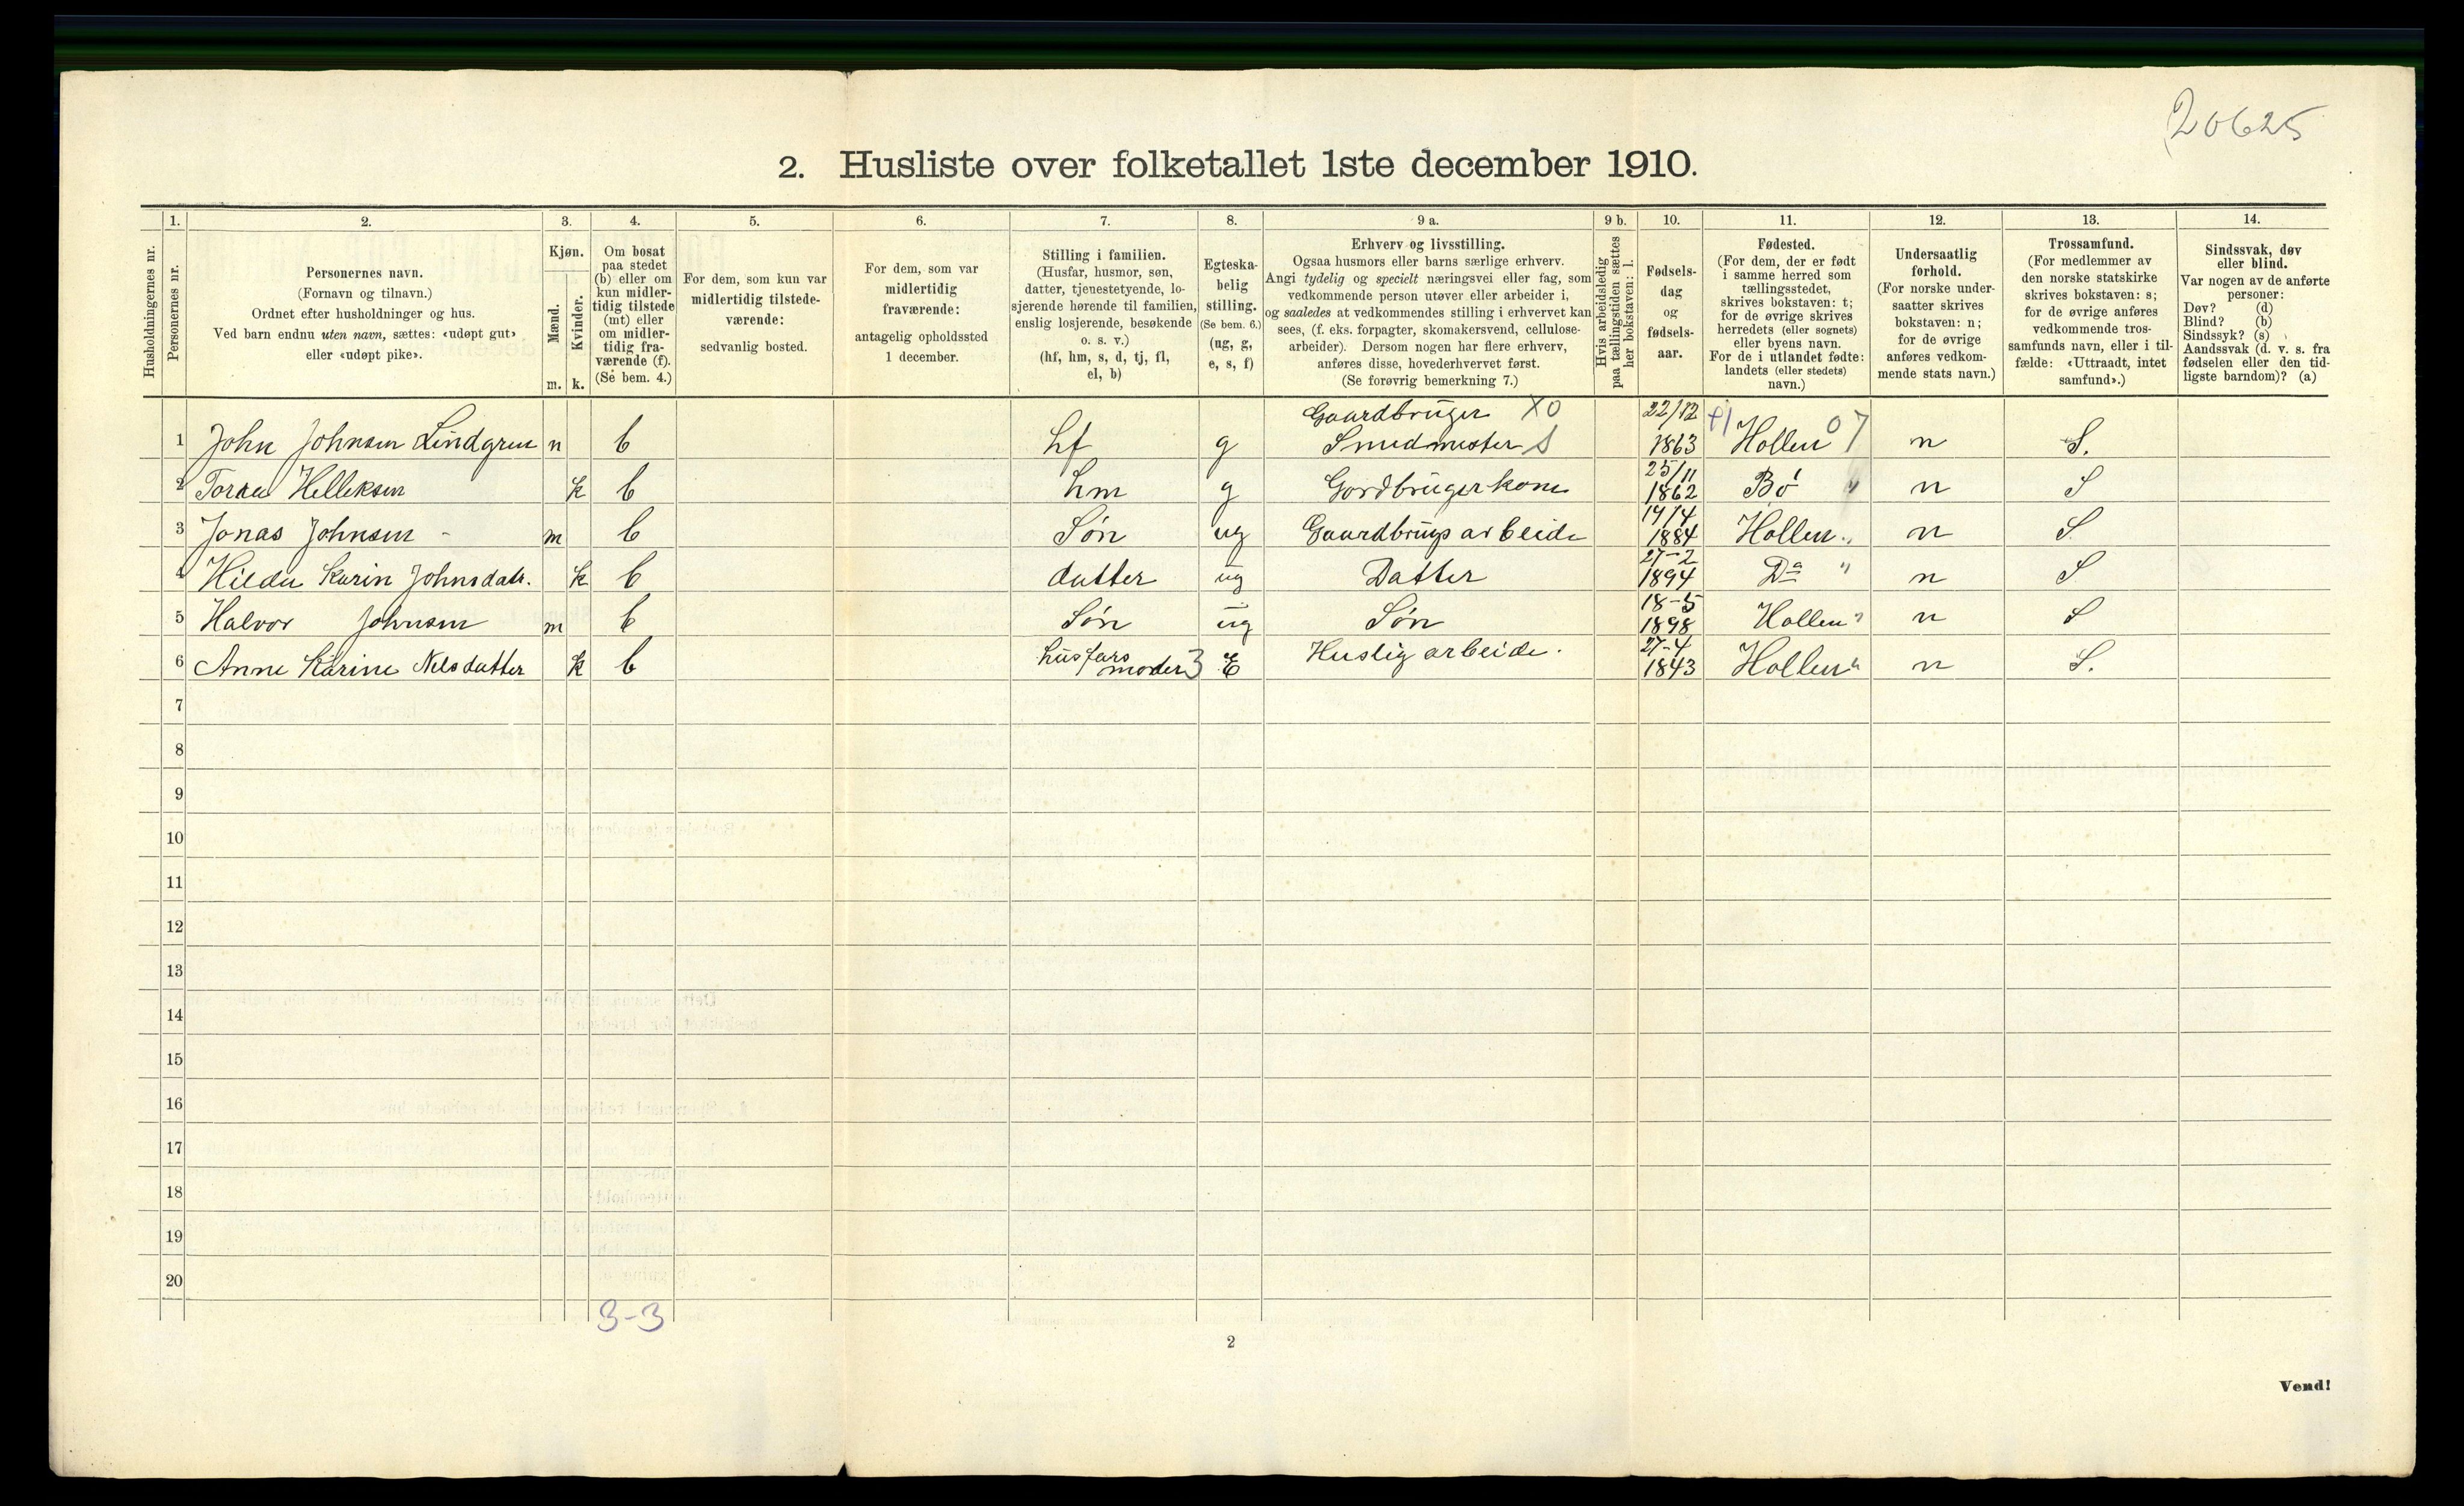 20625
2. Husliste over folketallet 1ste december 1910.
Husholdningernes nr.
1. Personernes nr.
2. Personernes navn.
(Fornavn og tilnavn.)
Ordnet efter husholdninger og hus.
Ved barn endnu uten navn, sættes: «udøpt gut»
eller «udøpt pike».
3. Kjøn.
Mænd. m.
Kvinder. k.
4. Om bosat
paa stedet
(b) eller om
kun midler-
tidig tilstede
(mt) eller
om midler-
tidig fra-
værende (f).
(Se bem. 4.)
5. For dem, som kun var
midlertidig tilstede-
værende:
sedvanlig bosted.
6. For dem, som var
midlertidig
fraværende:
antagelig opholdssted
1 december.
7. Stilling i familien.
(Husfar, husmor, søn,
datter, tjenestetyende, lo-
sjerende hørende til familien,
enslig losjerende, besøkende
o. s. v.)
(hf, hm, s, d, tj, fl,
el, b)
8. Egteska-
belig
stilling.
(Se bem. 6.)
(ug, g,
e, s, f)
9 a. Erhverv og livsstilling.
Ogsaa husmors eller barns særlige erhverv.
Angi tydelig og specielt næringsvei eller fag, som
vedkommende person utøver eller arbeider i,
og saaledes at vedkommendes stilling i erhvervet kan
sees, (f. eks. forpagter, skomakersvend, cellulose-
arbeider). Dersom nogen har flere erhverv,
anføres disse, hovederhvervet først.
(Se forøvrig bemerkning 7.)
9 b. Hvis arbeidsledig
paa tællingstiden sættes
her bokstaven: l.
10. Fødsels-
dag
og
fødsels-
aar.
11. Fødested.
(For dem, der er født
i samme herred som
tællingsstedet,
skrives bokstaven: t;
for de øvrige skrives
herredets (eller sognets)
eller byens navn.
For de i utlandet fødte:
landets (eller stedets)
navn.)
12. Undersaatlig
forhold.
(For norske under-
saatter skrives
bokstaven: n;
for de øvrige
anføres vedkom-
mende stats navn.)
13. Trossamfund.
(For medlemmer av
den norske statskirke
skrives bokstaven: s;
for de øvrige anføres
vedkommende tros-
samfunds navn, eller i til-
fælde: «Uttraadt, intet
samfund».)
14. Sindssvak, døv
eller blind.
Var nogen av de anførte
personer:
Døv? (d)
Blind? (b)
Sindssyk? (s)
Aandssvak (d. v. s. fra
fødselen eller den tid-
ligste barndom)? (a)
1 John Johnsen Lindgren m b hf g Gaardbruger X0 Smedmester S 22/12 1863 Hollen 07 n S.
2 Helleksen k b hm g Gordbrugerkone 25/11 1862 Bö " n S
3 Jonas Johnsen - m b Søn ug Gaardbrugs arbeide 19/4 1884 Hollen " n S
4 Hilda Karin Johnsdatr. k b datter ug Datter 27-2 1894 Da " n S
5 Halvor Johnsen m b Søn ug Søn 18-5 1898 Hollen " n S
6 Anne Karine Nelsdatter k b husfars moder 3 E Huslig arbeide. 27-4 1843 Hollen " n S.
7
8
9
10
11
12
13
14
15
16
17
18
19
20
3-3
2
Vend!